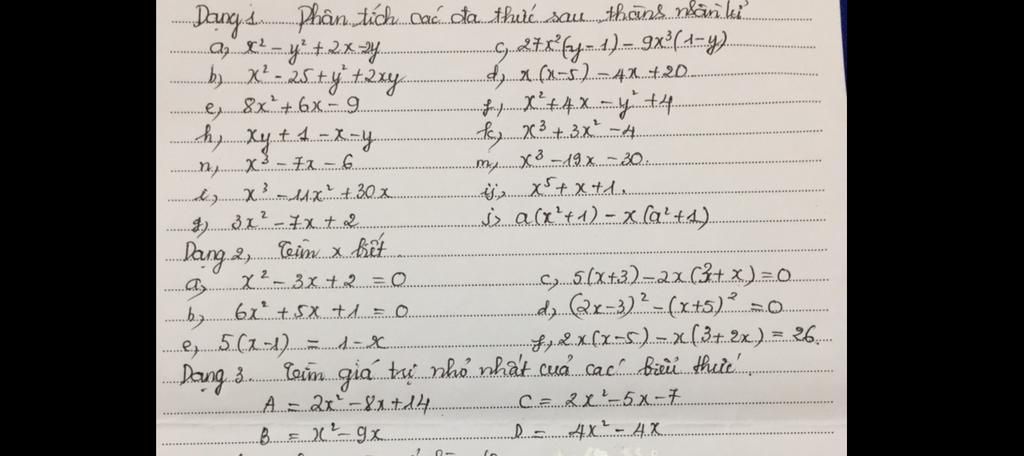 Dạng 1. Phân tích các đa thức sau thành nhân tử
a, x² - y² + 2x - 2y c, 27x²(y-1) - 9x³(1-y)
b) x² - 25 + y² + 2xy d, x(x-5) - 4x + 20
e, 8x² + 6x - 9 f, x² + 4x - y² + 4
h, xy + 1 - x - y k, x³ + 3x² - 4
n, x³ - 7x - 6 m, x³ - 19x - 30.
i, x³ - 11x² + 30x ij, x⁵ + x + 1.
g) 3x² - 7x + 2 j> a(x²+1) - x(a²+1)
Dạng 2, Tìm x biết
a, x² - 3x + 2 = 0 c, 5(x+3) - 2x(3+x) = 0
b, 6x² + 5x + 1 = 0 d, (2x-3)² - (x+5)² = 0
e, 5(x-1) = 1 - x f, 2x(x-5) - x(3+2x) = 26.
Dạng 3. Tìm giá trị nhỏ nhất của các biểu thức.
A = 2x² - 8x + 14 C = 2x² - 5x - 7
B = x² - 9x D = 4x² - 4x